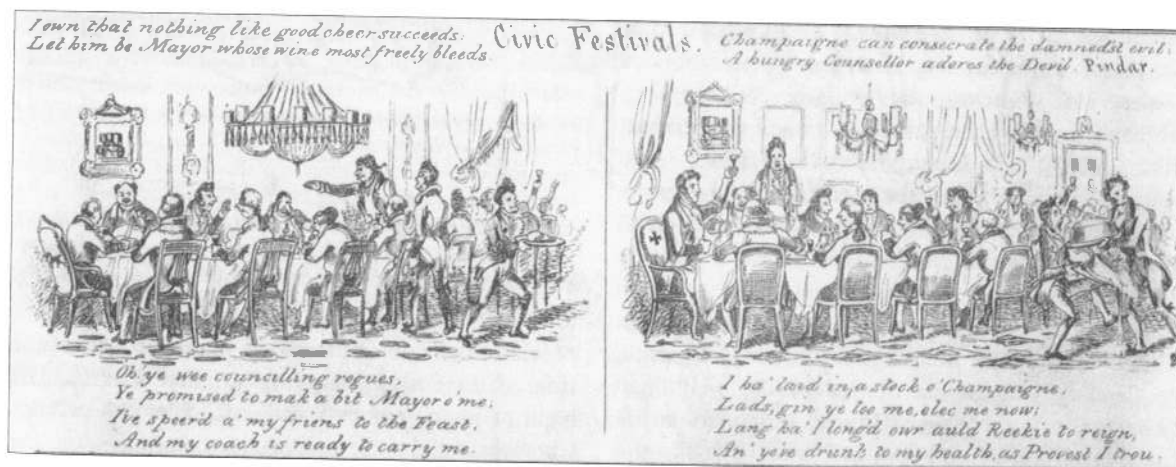 I own that nothing like good cheer succeeds:
Let him be Mayor whose wine most freely bleeds.
Civic Festivals.
Champaigne can consecrate the damnedst evil;
A hungry Counsellor adores the Devil. Pindar.
Oh ye wee councilling rogues,
Ye promised to mak a bit Mayor o' me;
I've speer'd a' my friens to the Feast,
And my coach is ready to carry me.
I ha' laid in, a stock o' Champaigne,
Lads, gin ye loo me, elec me now;
Lang ha' I long'd owr auld Reekie to reign,
An' ye've drunk to my health, as Provost I trou.